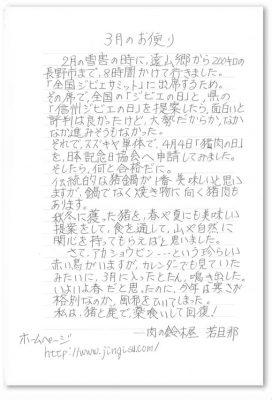 3月のお便り
2月の雪害の時に、遠山郷から200キロの
長野市まで、8時間かけて行きました。
「全国ジビエサミット」に出席するため。
その席で、全国の「ジビエの日」と、県の
「信州ジビエの日」を提案したら、面白いと
評判は良かったけど、大勢だからか、なか
なか進みそうもなかった。
それで、スズキヤ単体で、4月4日「猪肉の日」
を、日本記念日協会へ申請してみました。
そしたら、何と合格だに。
伝統的な猪鍋が1番美味しいと思い
ますが、鍋でなく焼き物に向く猪肉も
あります。
秋冬に獲った猪を、春や夏にも美味しい
提案をして、食を通して、山や自然に
関心を持ってもらえばと思いました。
さて、アカショウビン…という珍らしい
赤い鳥がいますが、カレンダーでも見ていた
みたいに、3月に入ったとたん、鳴き出した。
いよいよ春だと思ったのに、今年は寒さが
格別なのか、風邪をひいてしまった。
私は、猪と鹿で、薬喰いして回復!
―肉の鈴木屋 若旦那
ホームページ
http://www.jingisu.com/